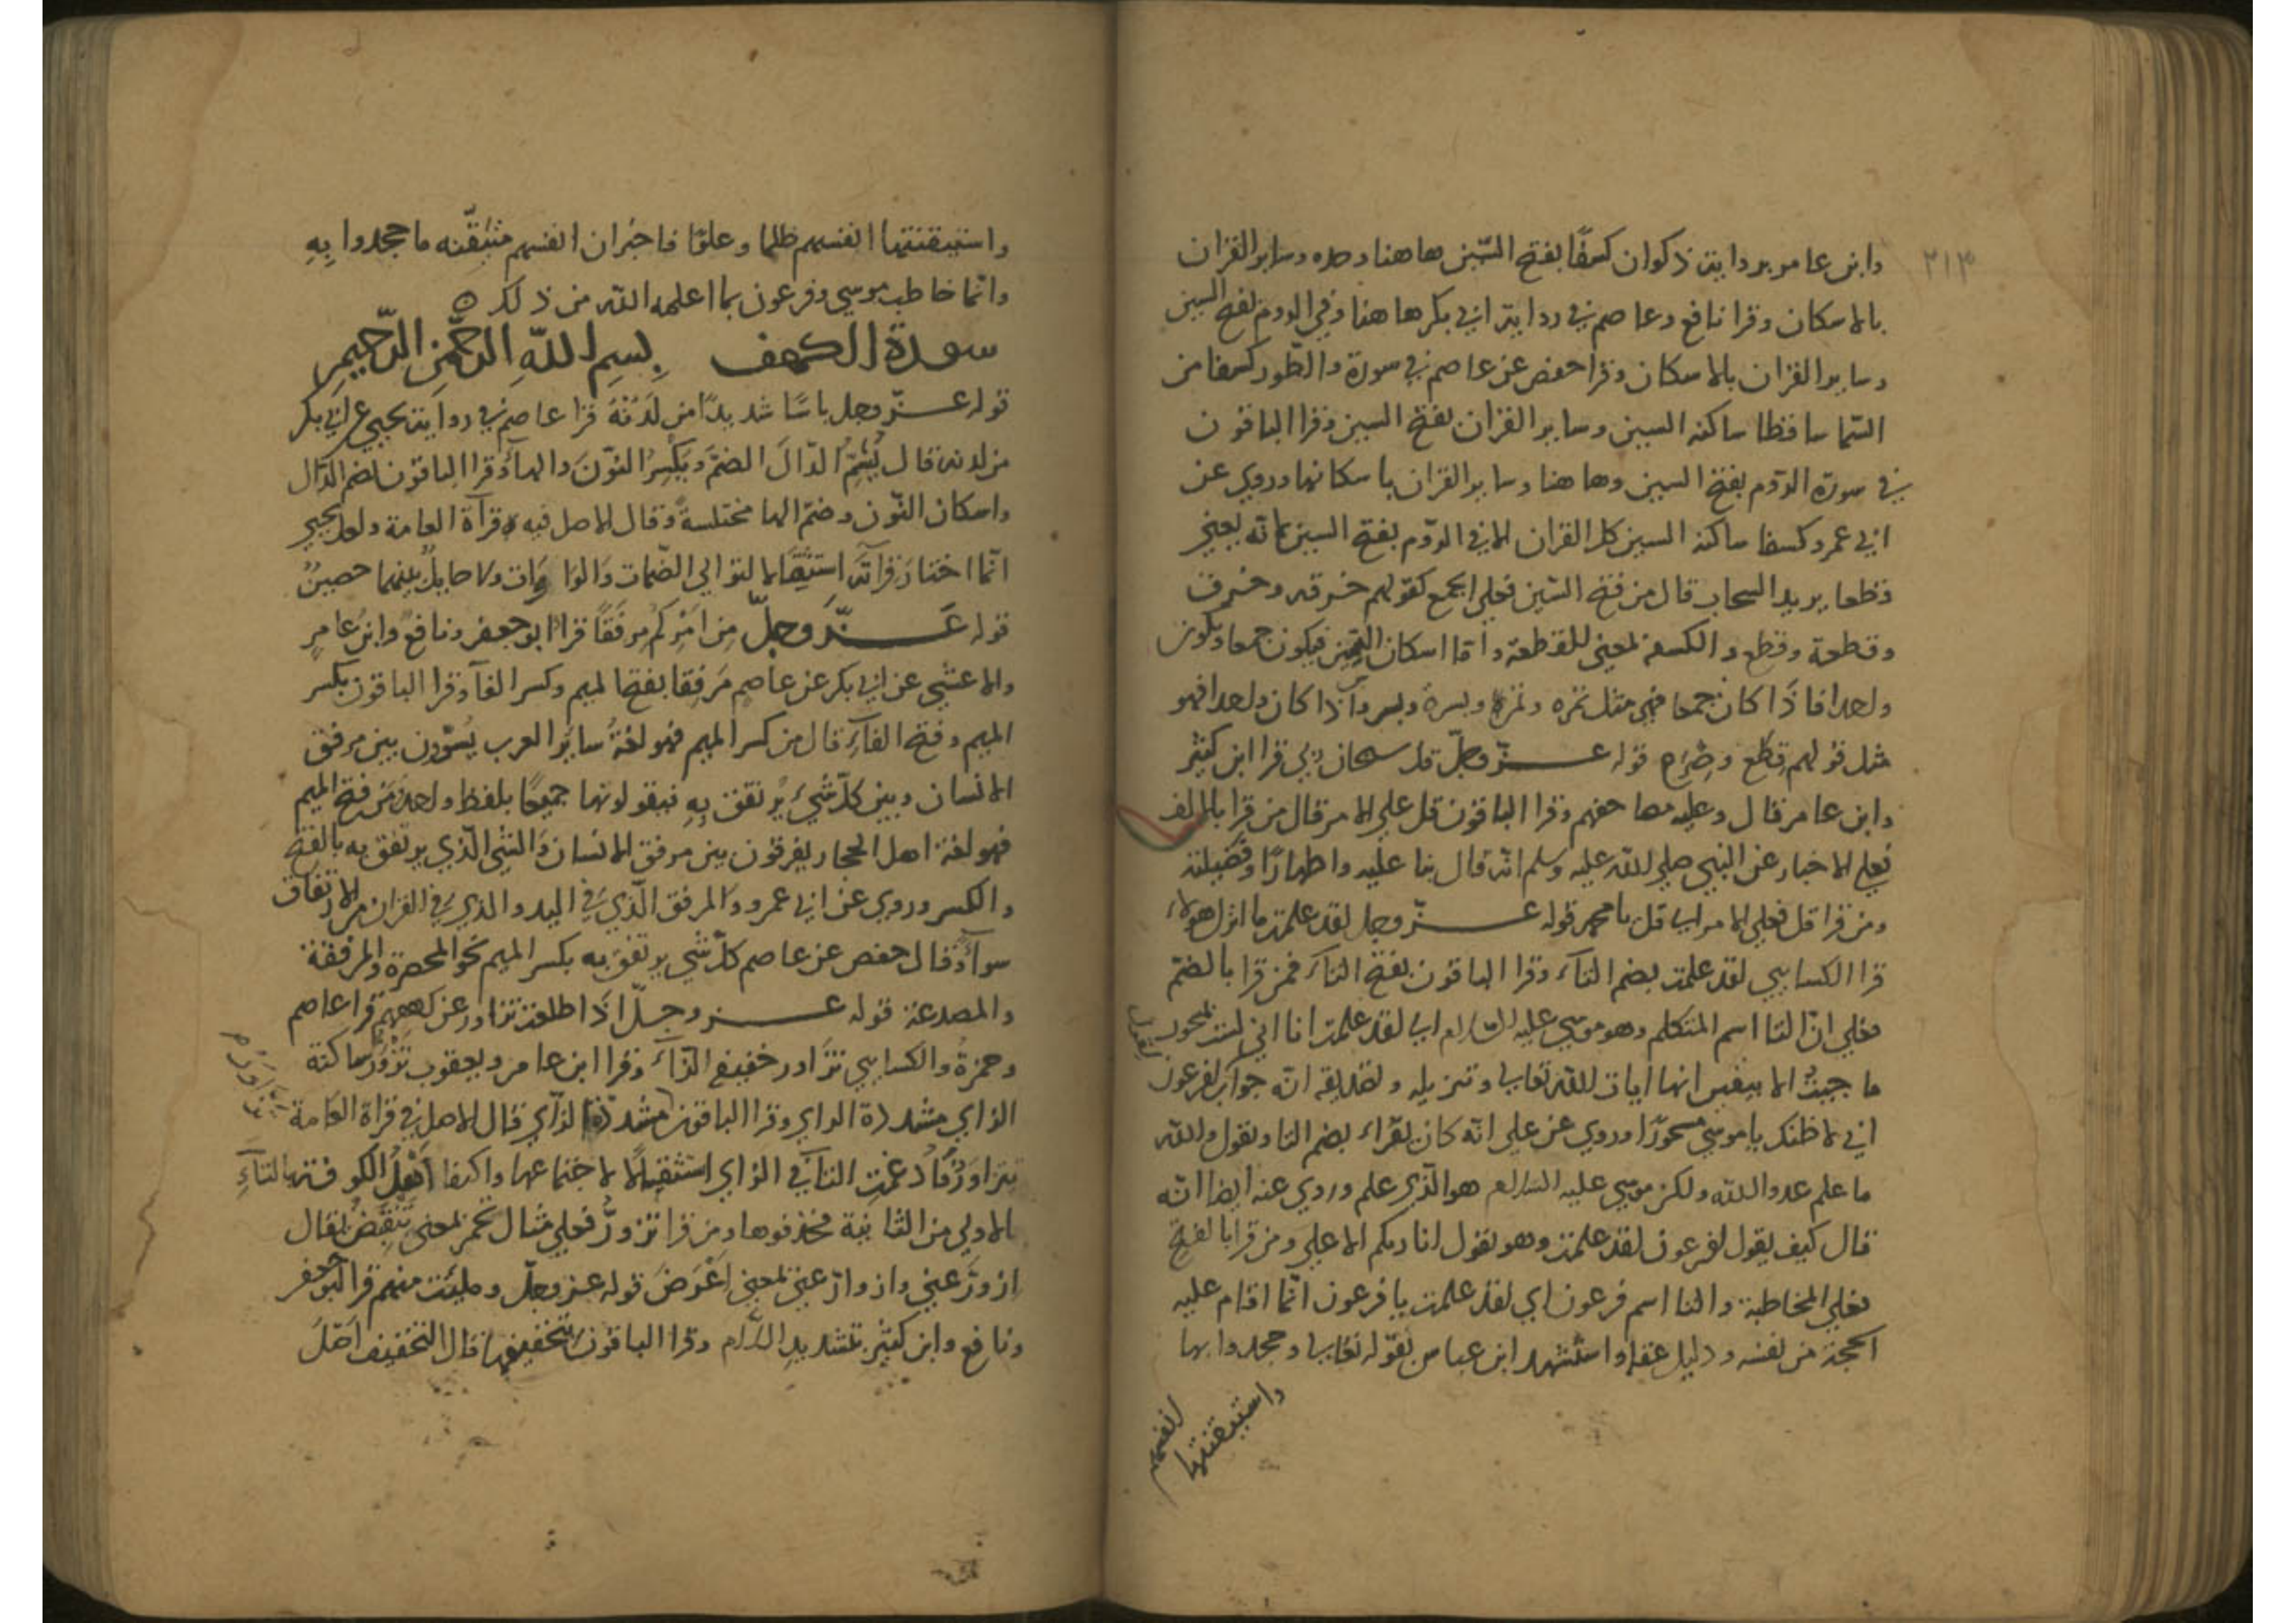 ٢١٣
وابن عامر برواية ذكوان كسفًا بفتح السّين هاهنا وحده وساير القران
بالاسكان وقرا نافع وعاصم في رواية ابي بكر هاهنا وفي الروم بفتح السين
وساير القران بالاسكان وقرا حفص عن عاصم في سورة والطّور كسفا من
السّما ساقطا ساكنه السين وساير القران بفتح السين وقرا الباقون
في سورة الرّوم بفتح السين وهاهنا وساير القران باسكانها وروي عن
ابي عمرو كسفا ساكنه السين كل القران الا في الرّوم بفتح السين كانه يعني
قطعا يريد السحاب قال من فتح السّين فعلى الجمع كقولهم خرقه وخرق
وقطعة وقطع والكسفه بمعنى للقطعة وأمّا اسكان السّين فيكون جمعا ويكون
واحدا فاذَا كان جمعا فهي مثل تمره وتمر وبسرة وبسر واذا كان واحدا فهو
مثل قولهم قِطْع قوله عزّ وجلّ قل سبحان ربي قرا ابن كثير
وابن عامر قال وعليه مصاحفهم وقرا الباقون قل على الامر قال من قرا بالالف
فعلى الاخبار عن النبي صلى الله عليه وسلم انّه قال
ومن قرا قل فعلى الامر اي قل يا محمد قوله عزّ وجل لقد علمت ما انزل هولاء
قرا الكسايي لقد علمت بضم التاء وقرا الباقون بفتح التاء فمن قرا بالضمّ
فعلي انّ التا اسم المتكلم وهو موسي عليه السّلام اي لقد علمت انا اني لست بمسحور
ما جيت الا بيقين انها ايات الله تعالى وتنزيله وتصديقه انّه جواب لفرعون
اني لاظنك يا موسي مسحورًا وروي عن علي انّه كان يقراء بضم التا ويقول والله
ما علم عدو الله ولكن موسي عليه السلام هو الّذي علم وروي عنه ايضا انّه
قال كيف يقول لفرعون لقد علمت وهو يقول انا ربكم الاعلى ومن قرا بالفتح
فعلي المخاطبة والتا اسم فرعون اي لقد علمت يا فرعون انّما اقام عليه
الحجة من نفسه ودليل عقله واستشهد ابن عباس بقوله تعالى وجحدوا بها
واستيقنتها
انفسهم
واستيقنتها انفسهم ظلما وعلوّا فاخبر ان انفسهم متيقّنه ما جحدوا بِهِ
وانّما خاطب موسي وفرعون بما اعلمه الله من ذلك ه
سورة الكهف بِسمِ اللّهِ الرّحمٰنِ الرّحيمِ
قوله عزّ وجل باسًا شديدًا من لَدُنْهُ قرا عاصم في رواية يحيي عن ابي بكر
من لدنه قال يُشِمُّ الدّالَ الضمَّ وَيَكْسِرُ النّونَ والهاَ وقرا الباقون بضم الدّال
واسكان النّون وضمّ الها مختلسةً وقال الاصل فيه قرآة العامة ولعل يحيي
انّما اختار قرآته استثقالا لتوالي الضّمات ولا حايلٌ بينهما حصينٌ
قوله عَزَّ وَجلّ مِن امْرِكُم مِرفَقًا قرا ابو جعفر ونافع وابن عامر
والاعشي عن ابي بكر عن عاصم مَرفِقا بفتح الميم وكسر الفآ وقرا الباقون بكسر
الميم وفتح الفآءِ قال من كسر الميم فهو لغةُ سايرِ العرب يُسَوّون بين مرفق
الانسان وبين كلّ شيء يرتفق بِهِ فيقولونها جميعًا بلفظ واحد ومن فتح الميم
فهو لغة اهل الحجاز يفرقون بين مرفق الانسان والشي الّذي يرتفق به بالفتح
والكسر وروي عن ابي عمرو والمرفق الّذي في اليد والذي في القران من الارتفاق
سوآءٌ وقال حفص عن عاصم كلّ شي يرتفق به بكسر الميم نحو والمرفقة
والمصدغة قوله عز وجلّ اذَا طلعت تزاور عن كهفهم قرا عاصم
وحمزةُ والكسايي تزَاور خفيفه الزّاءَ وقرا ابن عامر ويعقوب تَزْوَرّ ساكنة
الزاي مشددة الراي وقرا الباقون مشددة الزّاي قال الاصل في قراة العامة
تتزاورُ فادغمت التآ في الزاي استثقالًا لاجتماعهما واكتفا اهلُ الكوفة بالتآءِ
الاولي من الثانية فحذفوها ومن قرا تزورُّ فعلي مثال تحمر بمعنى تَنْقَبِضُ يقال
ازورَّ عني وازوارّ عني بمعنى اَعْرَضَ قوله عز وجلّ وملئت منهم قرا ابو جعفر
ونافع وابن كثير بتشديدِ اللّام وقرا الباقون بتخفيفها قال التخفيف اصْلَ